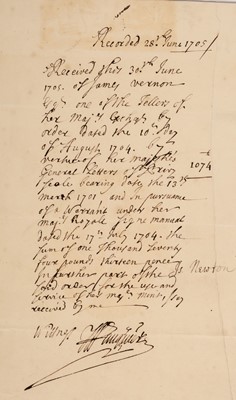 Recorded 28th June 1705/
Received this 30th June
1705. of James Vernon
Esqr one of the Tellers of
her Majts Exchqr by
order dated the 10th day
of August 1704. by
vertue of her majties
General Letters of Privy
Seale bearing date the 13th
1074
march 1701, and in pursuance
of a Warrant under her
maj Royall Signe manual
dated the 17th July 1704. the
sum of one Thousand Seventy
four pounds thirteen pence
in further part of the
Is. Newton
said order for the use and
service of her majts mint, I say
received by me
Witness